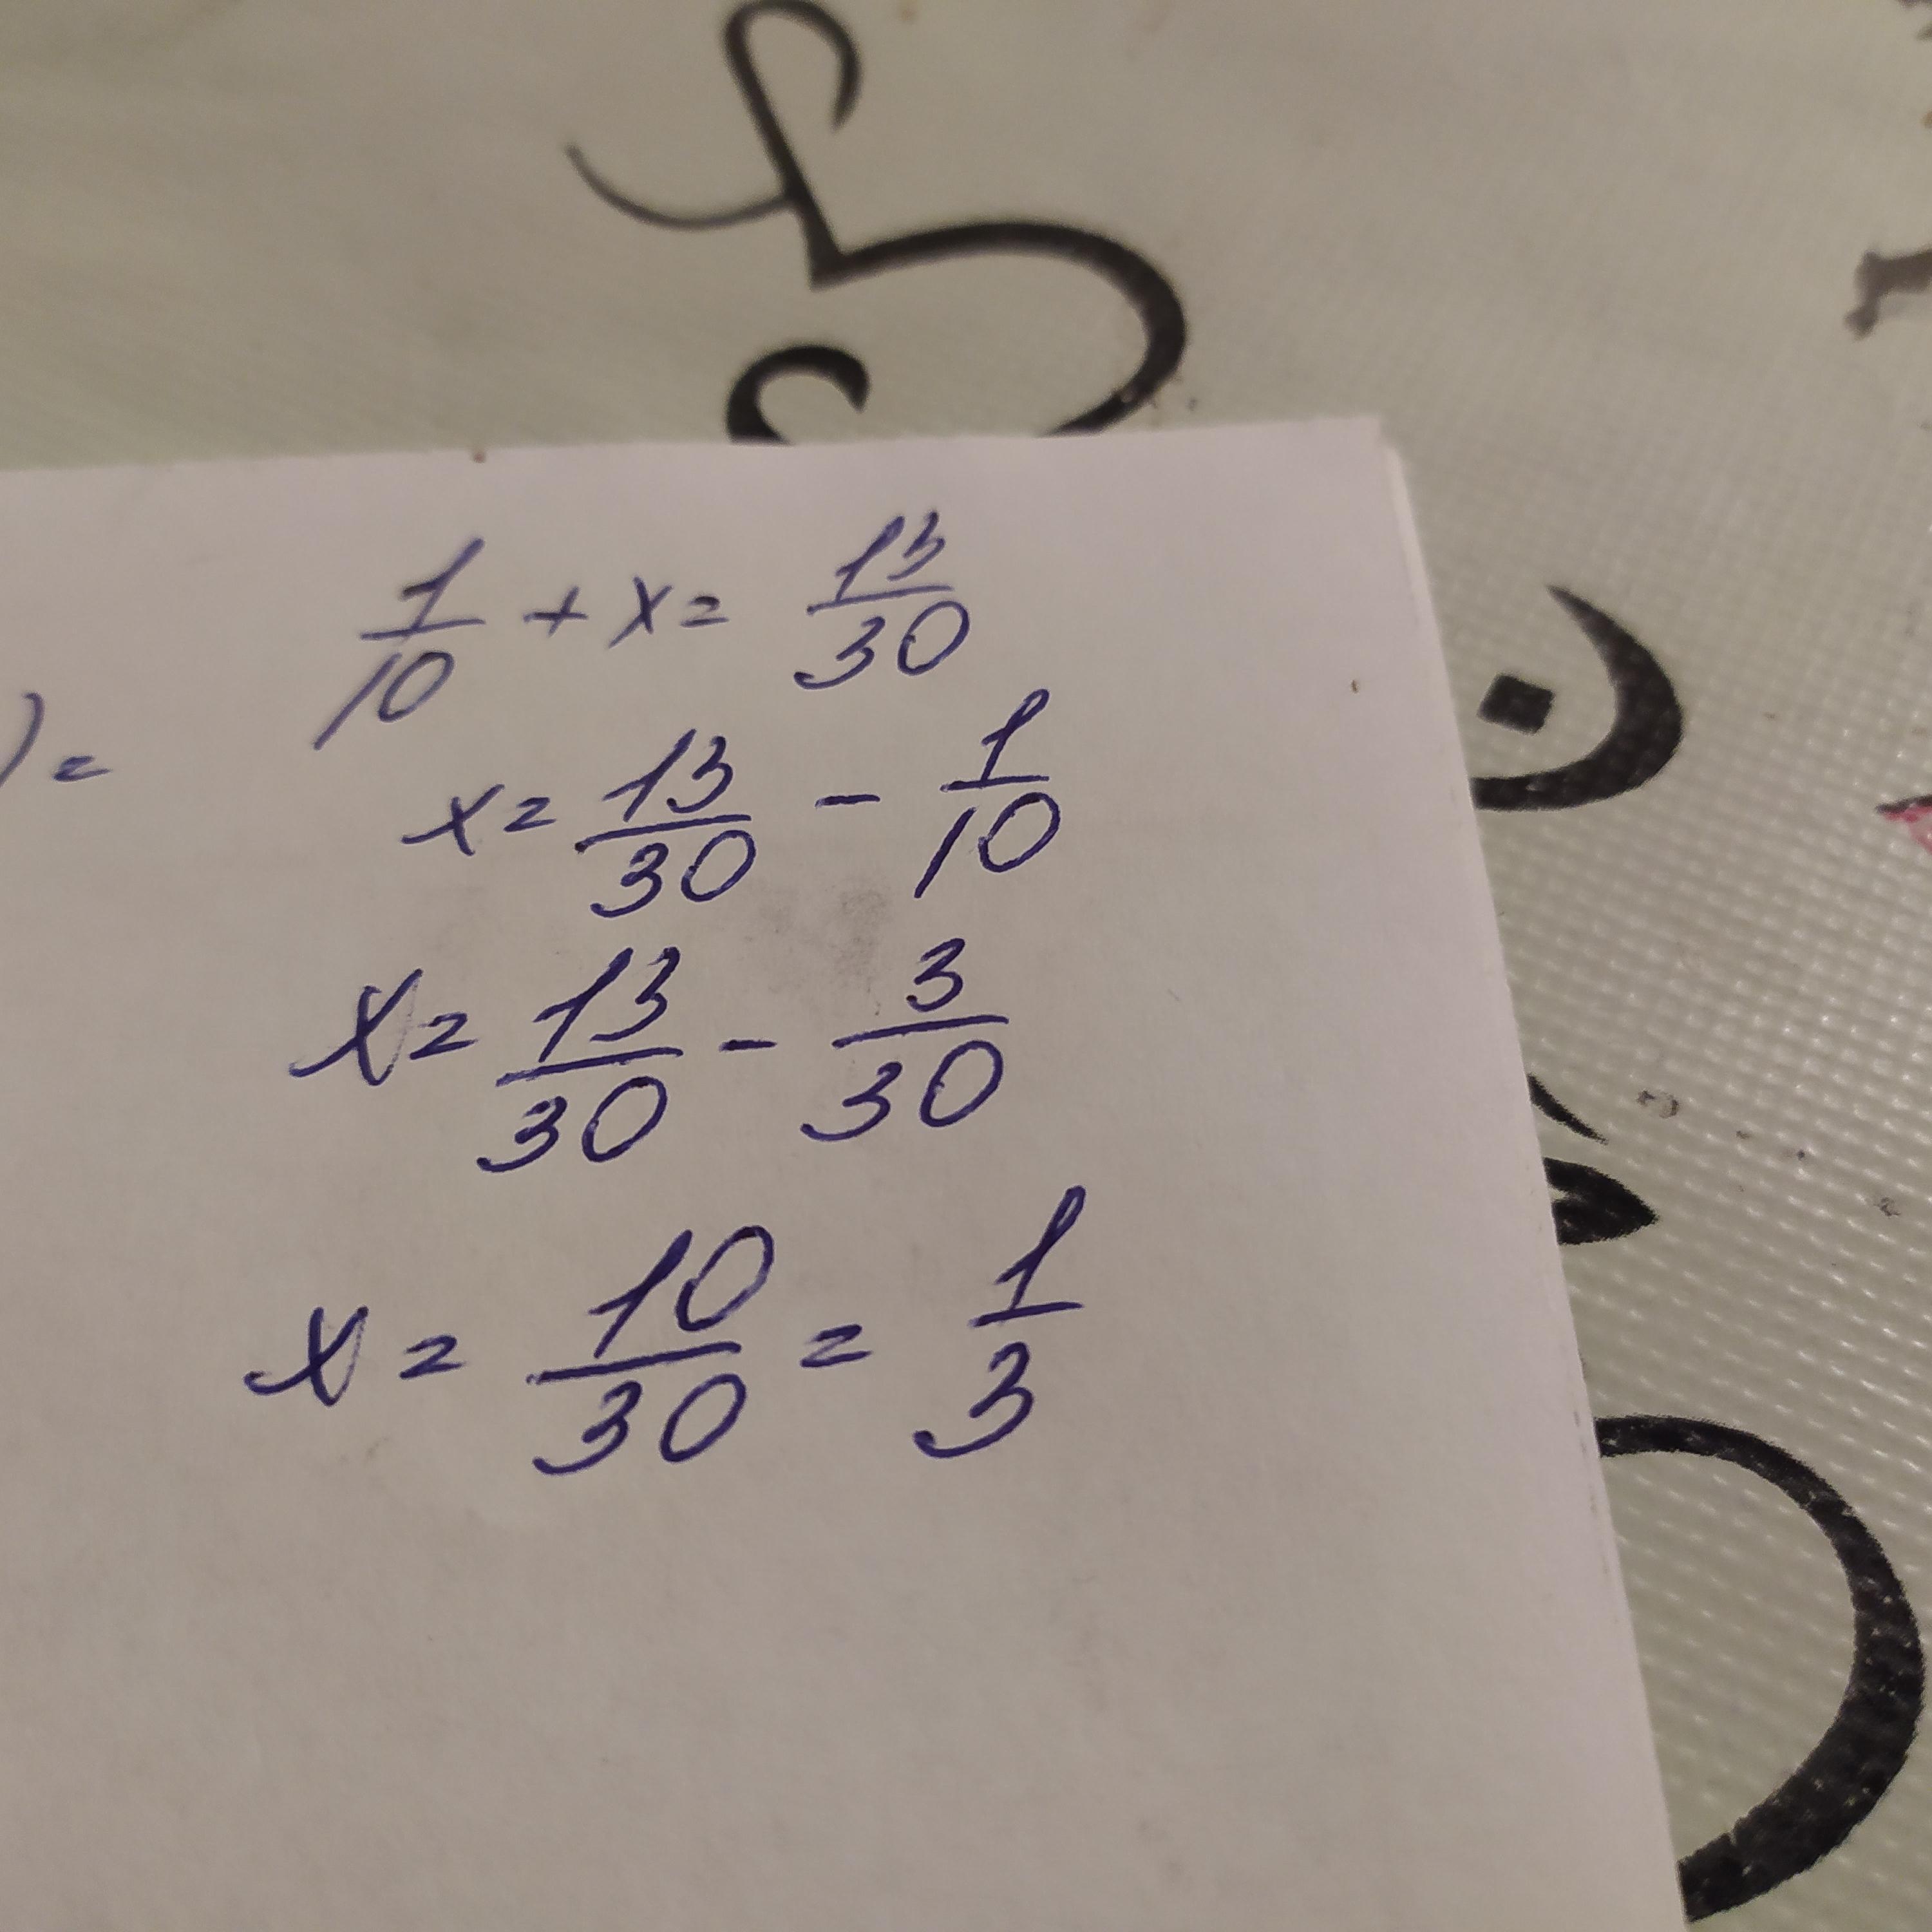 1/10 + x = 13/30
) =
x = 13/30 - 1/10
x = 13/30 - 3/30
x = 10/30 = 1/3